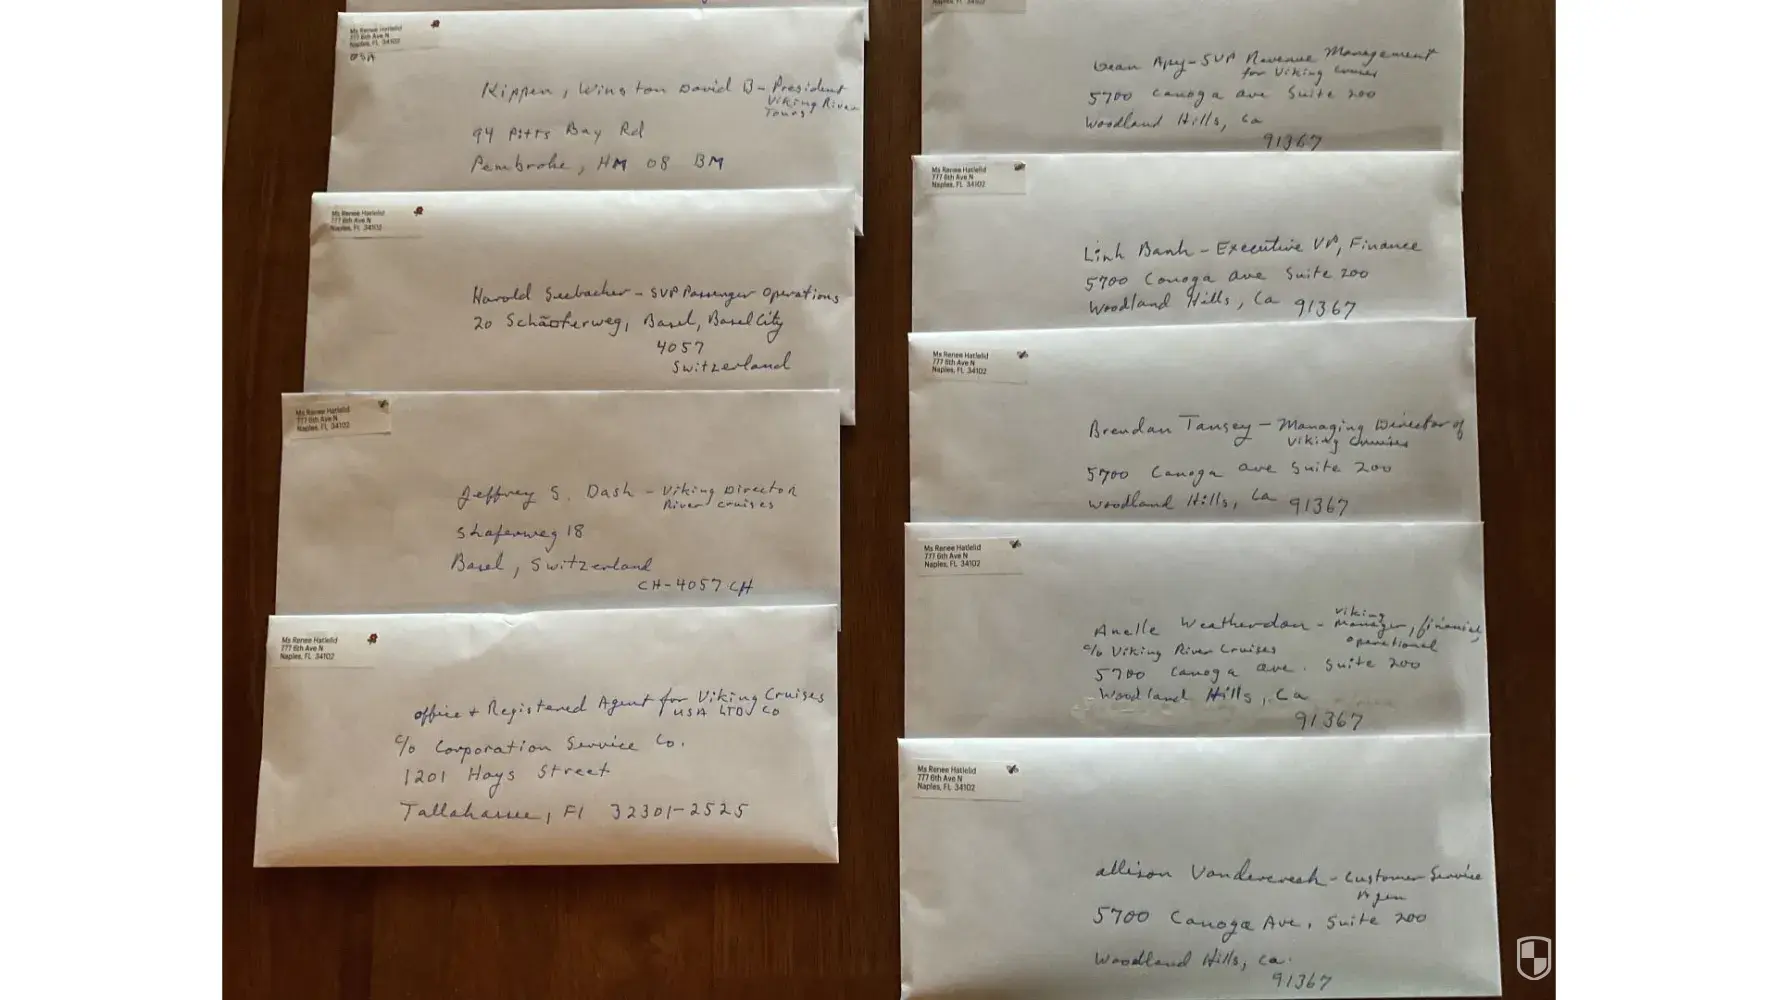 Ms Renee Hatlelid
777 6th Ave N
Naples, FL 34102
USA
Kippen, Winston David B - President
Viking River
Tours
94 Pitts Bay Rd
Pembroke, HM 08 BM
Ms Renee Hatlelid
777 6th Ave N
Naples, FL 34102
Harold Seebacher - SVP Passenger Operations
20 Schäoferweg, Basel, Basel City
4057
Switzerland
Ms Renee Hatlelid
777 6th Ave N
Naples, FL 34102
Jeffrey S. Dash - Viking Director
River Cruises
Shaferweg 18
Basel, Switzerland
CH-4057 CH
Ms Renee Hatlelid
777 6th Ave N
Naples, FL 34102
Office + Registered Agent for Viking Cruises
USA LTD Co
c/o Corporation Service Co.
1201 Hays Street
Tallahassee, Fl 32301-2525
Naples, FL 34102
Apy - SVP Revenue Management
for Viking
5700 Canoga Ave Suite 200
Woodland Hills, Ca
91367
Ms Renee Hatlelid
777 6th Ave N
Naples, FL 34102
Linh Banh - Executive VP, Finance
5700 Canoga Ave Suite 200
Woodland Hills, Ca 91367
Ms Renee Hatlelid
777 6th Ave N
Naples, FL 34102
Brendan Tansey - Managing Director of
Viking Cruises
5700 Canoga Ave Suite 200
Woodland Hills, Ca 91367
Ms Renee Hatlelid
777 6th Ave N
Naples, FL 34102
Anelle Weatherdon - Viking
Manager, financial,
operational
c/o Viking River Cruises
5700 Canoga Ave. Suite 200
Woodland Hills, Ca
91367
Ms Renee Hatlelid
777 6th Ave N
Naples, FL 34102
Allison Vandercreek - Customer Service
Agen
5700 Canoga Ave, Suite 200
Woodland Hills, Ca.
91367